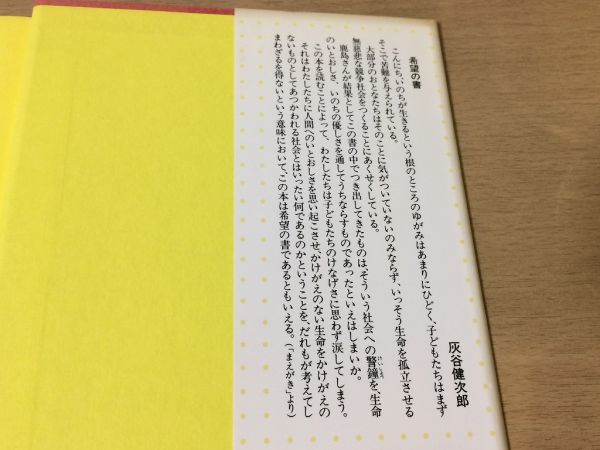 希望の書
灰谷健次郎
こんにち、いのちが生きるという根のところのゆがみはあまりにひどく、子どもたちはまず
そこで苦難を与えられている。
大部分のおとなたちはそのことに気がついていないのみならず、いっそう生命を孤立させる
無慈悲な競争社会をつくることにあくせくしている。
鹿島さんが結果としてこの書の中でつき出してきたものは、そういう社会への警鐘を、生命
けいしょう
のいとおしさ、いのちの優しさを通してうちならすものであったといえはしまいか。
この本を読むことによって、わたしたちは子どもたちのけなげさに思わず涙してしまう。
それはわたしたちに人間へのいとおしさを思い起こさせ、かけがえのない生命をかけがえの
ないものとしてあつかわれる社会とはいったい何であるのかということを、だれもが考えてし
まわざるを得ないという意味において、この本は希望の書であるともいえる。(「まえがき」より)